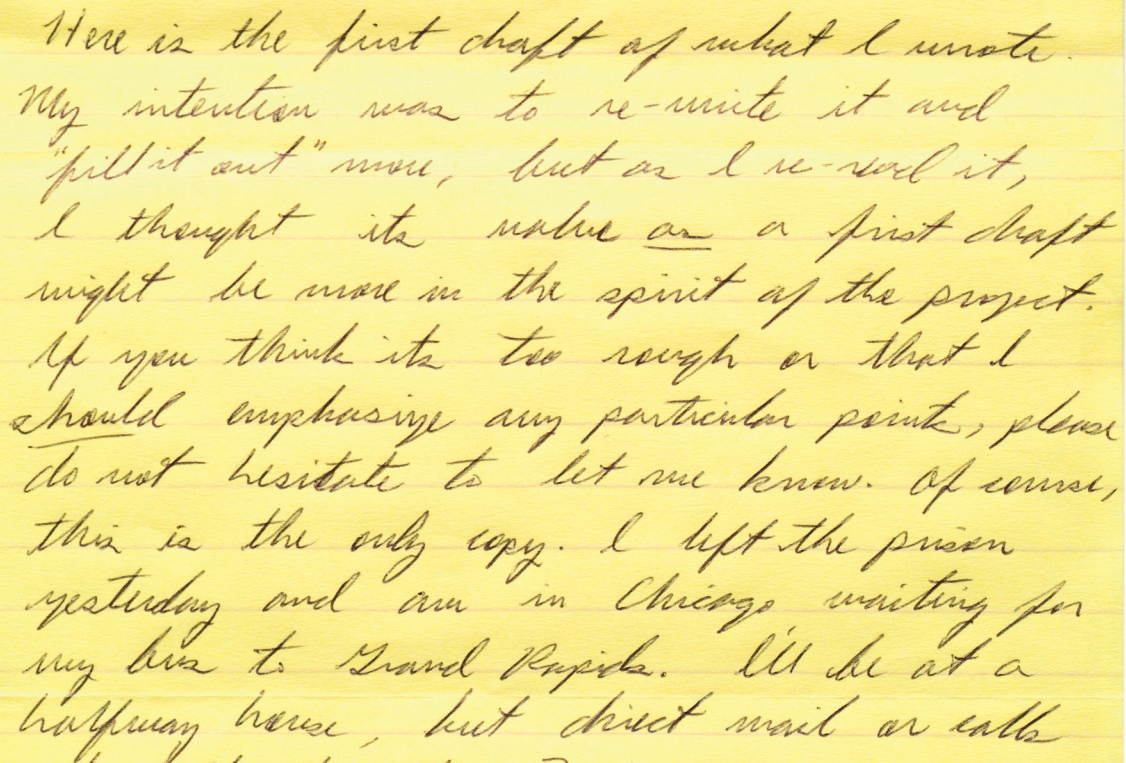 Here is the first draft of what I wrote.
My intention was to re-write it and
"fill it out" more, but as I re-read it,
I thought its value as a first draft
might be more in the spirit of the project.
If you think its too rough or that I
should emphasize any particular points, please
do not hesitate to let me know. Of course,
this is the only copy. I left the prison
yesterday and am in Chicago waiting for
my bus to Grand Rapids. I'll be at a
halfway house, but direct mail or calls